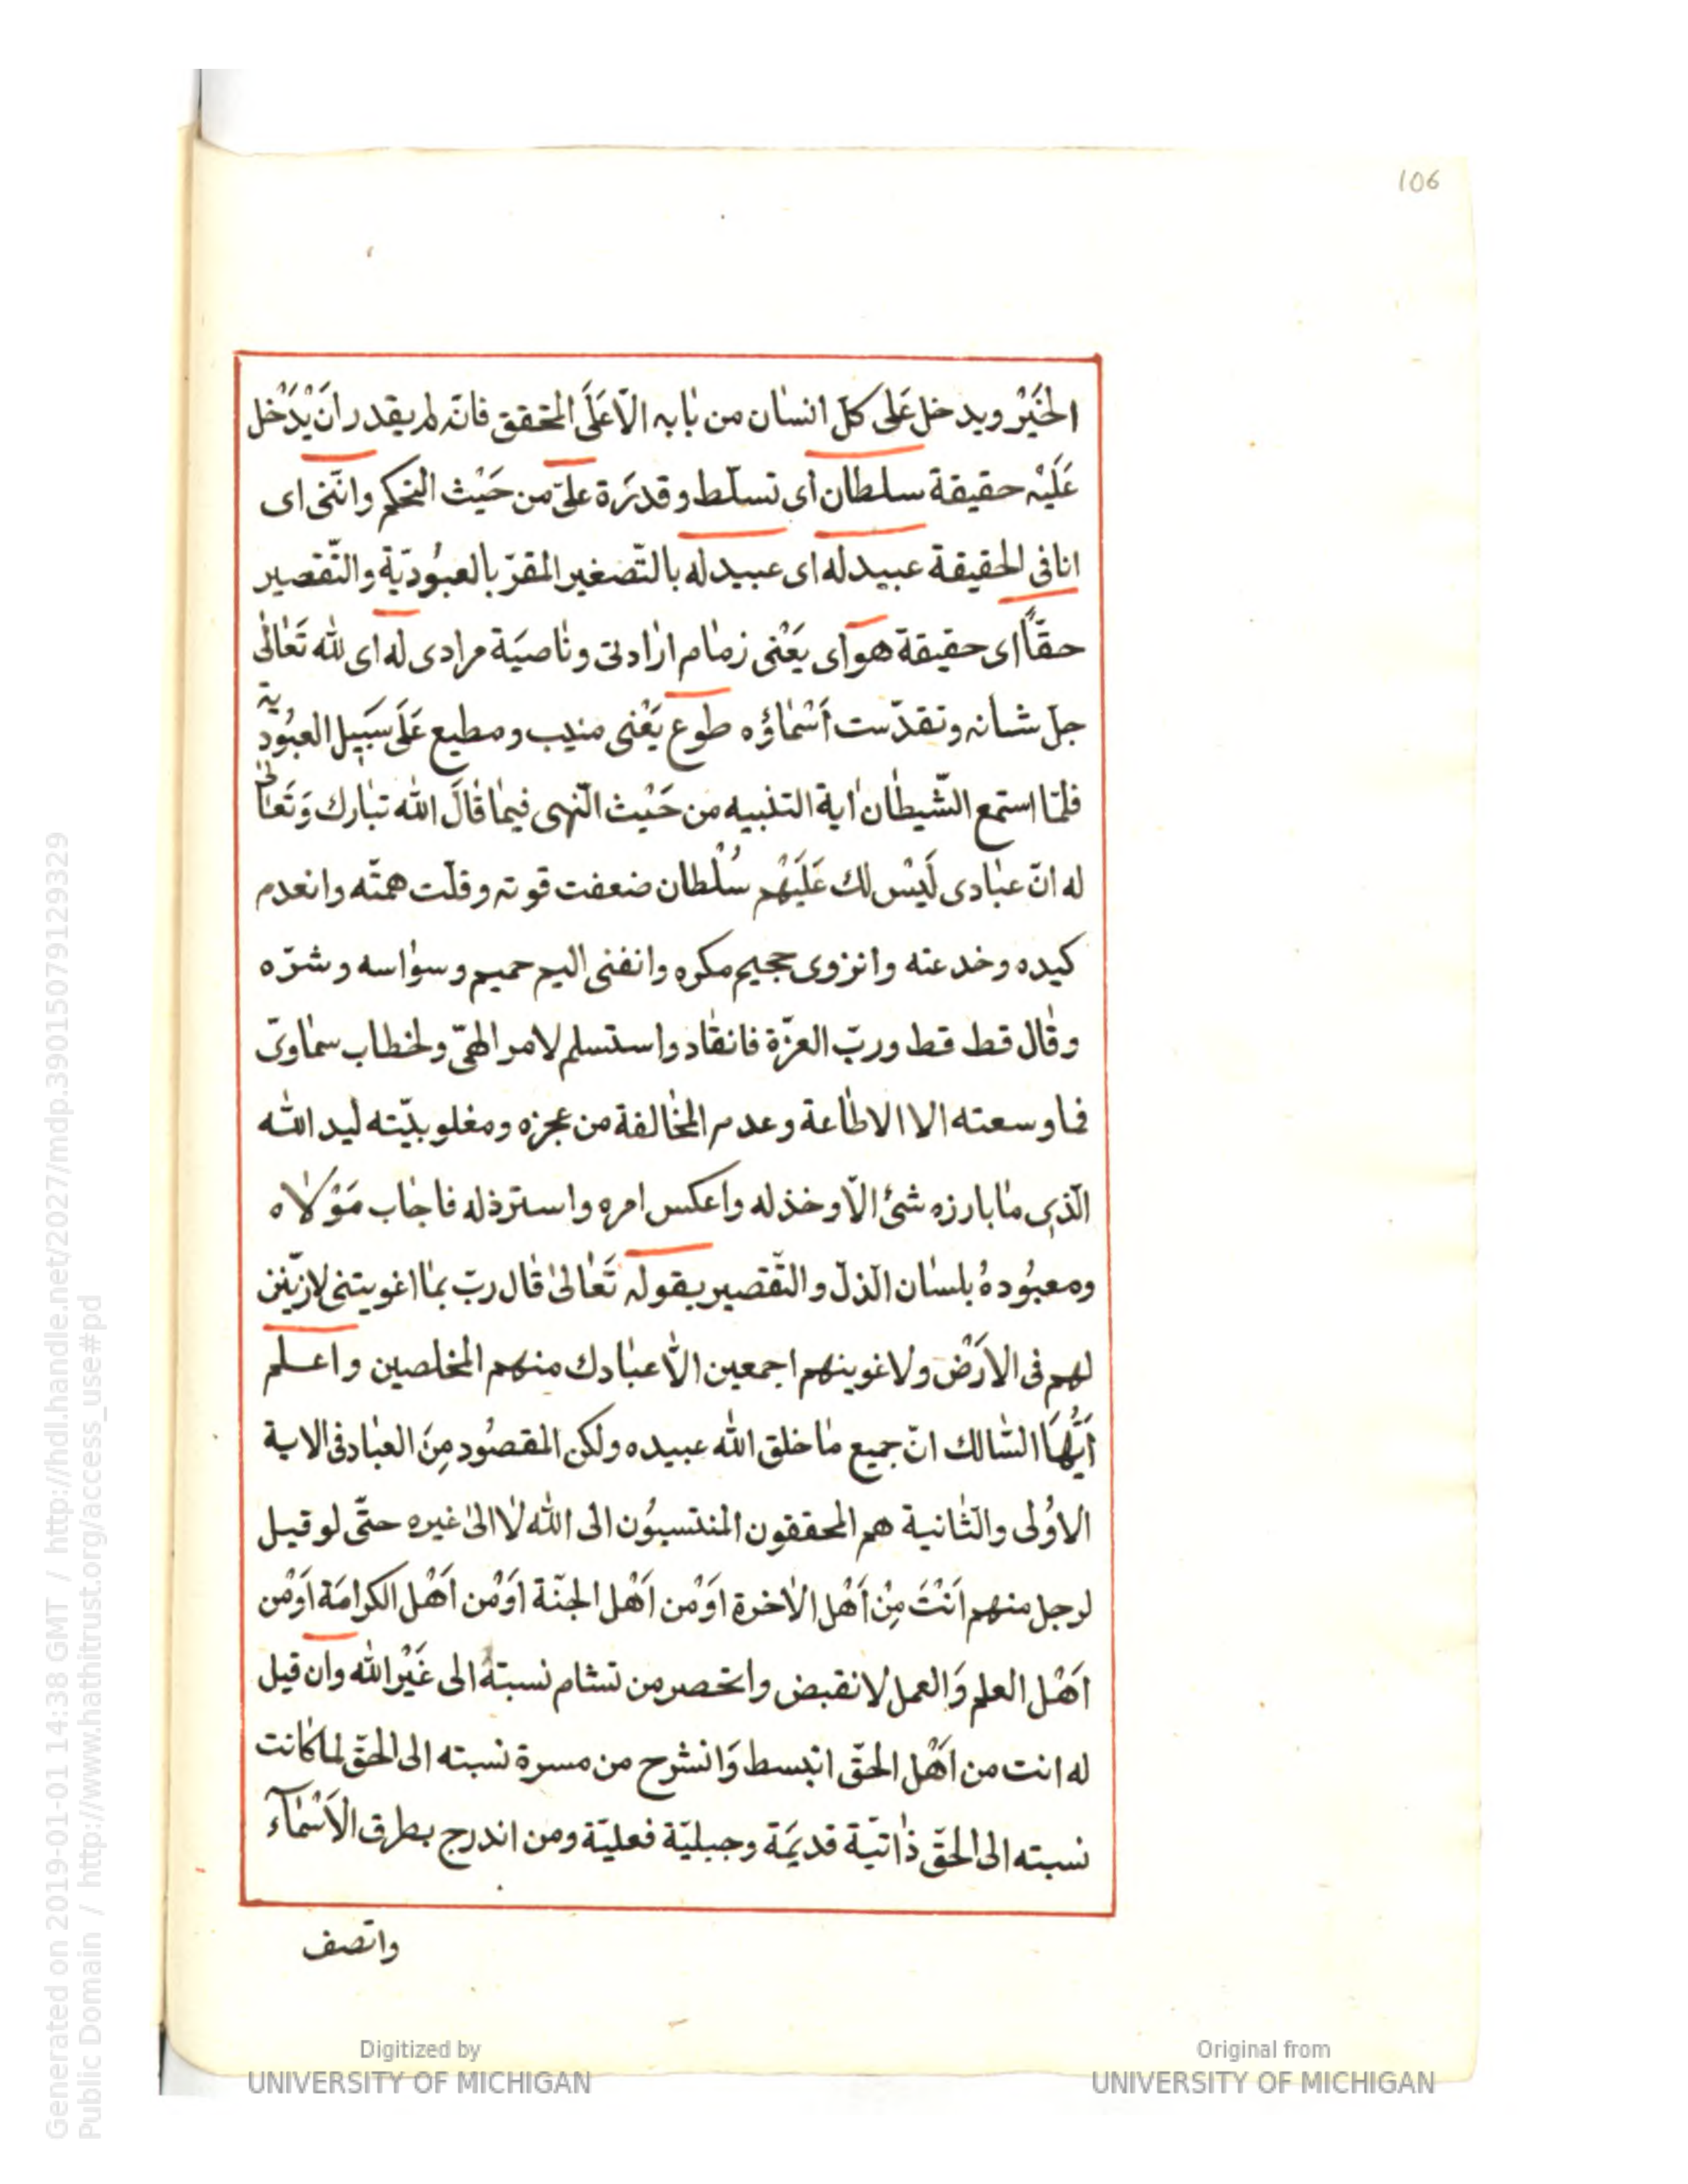 106
الخَيْر ويدخل عَلى كلّ انسان من بابه الّا عَلَى المتحقق فانّه لم يقدر انَ يْدَخل
عَلَيْه حقيقة سلطان اى تسلّط وقدرَة علىّ من حَيْث التحكم وانّنى اى
انا فى الحقيقة عبيد له اى عبيد له بالتّصغير المقرّ بالعبُوديّة والتّقصير
حقّاً اى حقيقة هواى يَعْنى زمام ارادتى وناصيَة مرادى له اى لله تَعَالٰى
جلّ شانه وتقدّست اَسْمَاؤُه طوع يَعْنى منيب ومطيع عَلَى سَبيل العبُوديّة
فلمّا استمع الشّيطان اية التنبيه من حَيْث النّهى فيمَا قَالَ الله تبارك وَتَعَالىٰ
له انّ عبادى لَيْس لك عَلَيْهم سُلْطان ضعفت قوته وقلّت همّته وانعدم
كيده وخدعته وانزوى جحيم مكره وانفنى اليم حميم وسواسه وشرّه
وقال قط قط وربّ العزّة فانقاد واستسلم لامر الهىّ ولخطاب سماوىّ
فما وسعته الا الاطاعة وعدم المخالفة من عجزه ومغلوبيّته ليد الله
الّذى ما بارزه شئ الّا وخذله واعكس امره واسترذله فاجاب مَوْلاه
ومعبُوده بلسان الذلّ والتّقصير بقوله تَعَالىٰ قال ربّ بما اغويتنى لازيّنن
لهم فى الارَضْ ولاغوينهم اجمعين الّا عبادك منهم المخلصين واعلم
اَيُّهَا السّالك انّ جميع ما خلق الله عبيده ولكن المقصُود مِنَ العباد فى الاية
الاُولى والثّانية هم المحققون المنتسبُون الى الله لا الىٰ غيره حتّى لو قيل
لرجل منهم اَنْتَ مِنْ اَهْل الاخرة اَوْمن اَهْل الجنّة اَوْمن اَهْل الكرامَة اَوْمن
اَهْل العلم وَالعمل لانقبض وانحصر من تشام نسبته الى غَيْر الله وان قيل
له انت من اَهْل الحقّ انبسط وَانشرح من مسرة نسبته الى الحقّ لما كانت
نسبته الى الحقّ ذاتيّة قديَمة وجبليّة فعليّة ومن اندرج بطرق الاَسْمَآء
واتّصف
Generated on 2019-01-01 14:38 GMT / http://hdl.handle.net/2027/mdp.39015079129329
Public Domain / http://www.hathitrust.org/access_use#pd
Digitized by
UNIVERSITY OF MICHIGAN
Original from
UNIVERSITY OF MICHIGAN